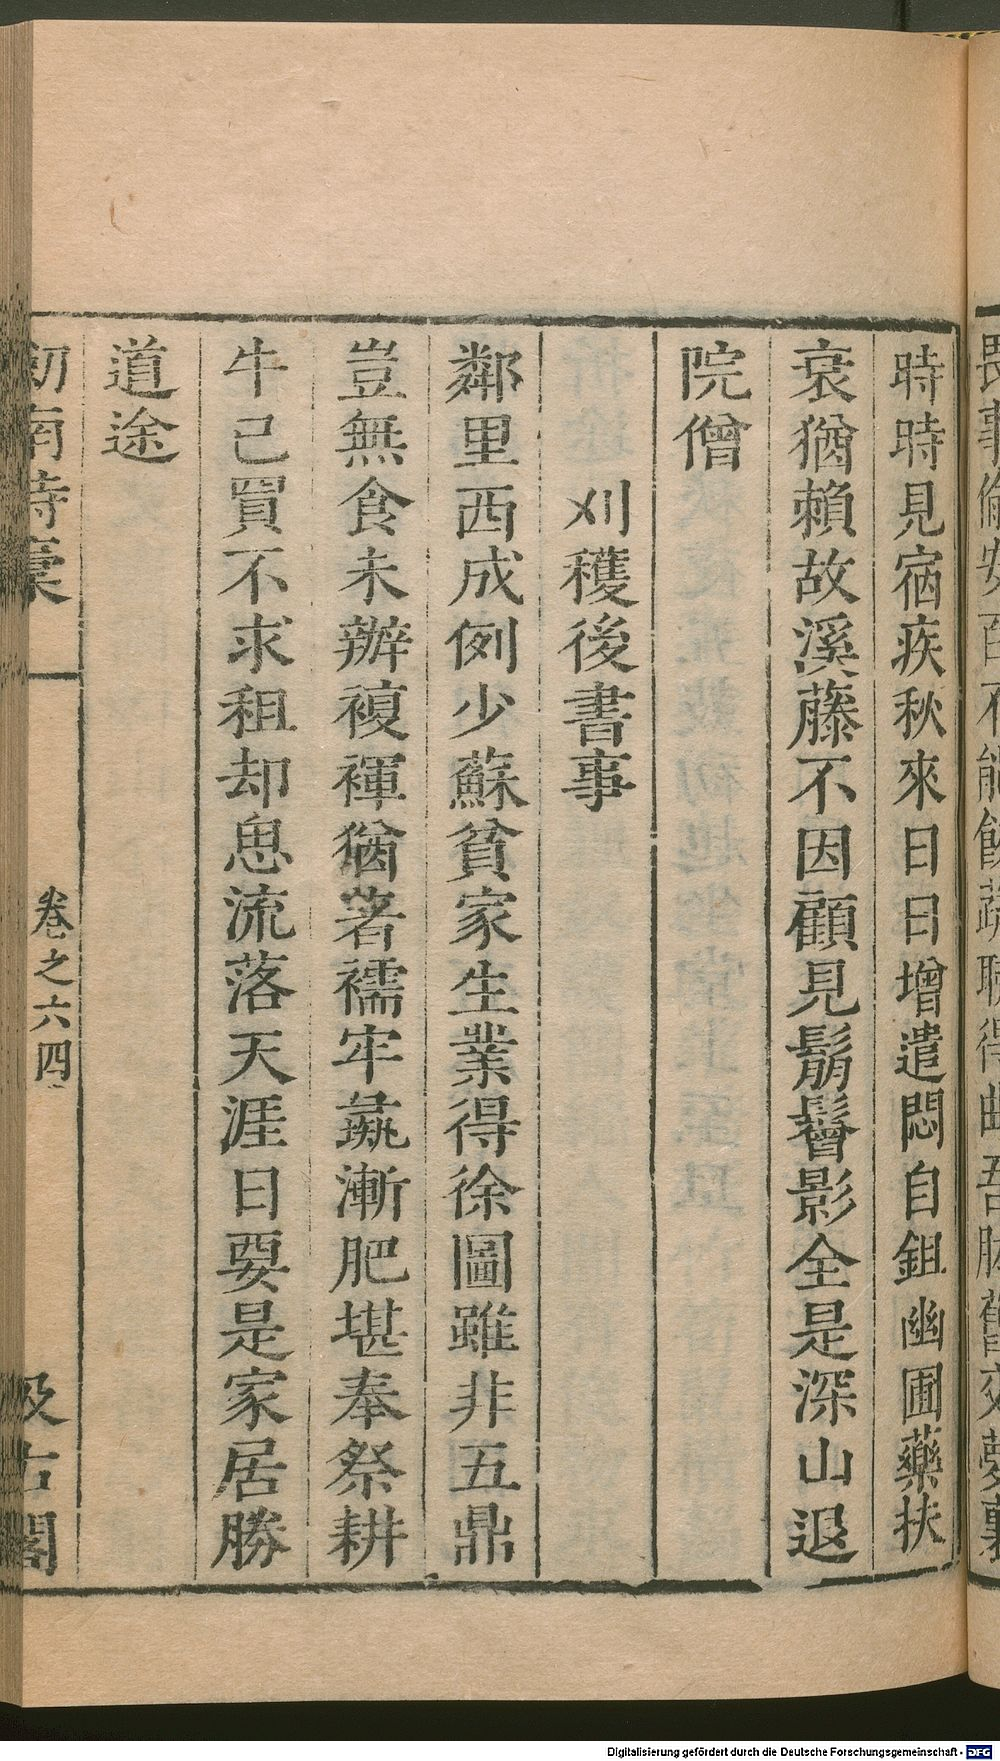 時時見宿疾秋來日日增遣悶自鉏幽圃藥扶
衰猶賴故溪藤不因顧見鬅鬙影全是深山退
院僧
刈穫後書事
鄰里西成例少蘇貧家生業得徐圖雖非五鼎
豈無食未辦複褌猶著襦牢彘漸肥堪奉祭耕
牛已買不求租却思流落天涯日要是家居勝
道途
劒南詩稾
卷之六四
汲古閣
Digitalisierung gefördert durch die Deutsche Forschungsgemeinschaft - DFG